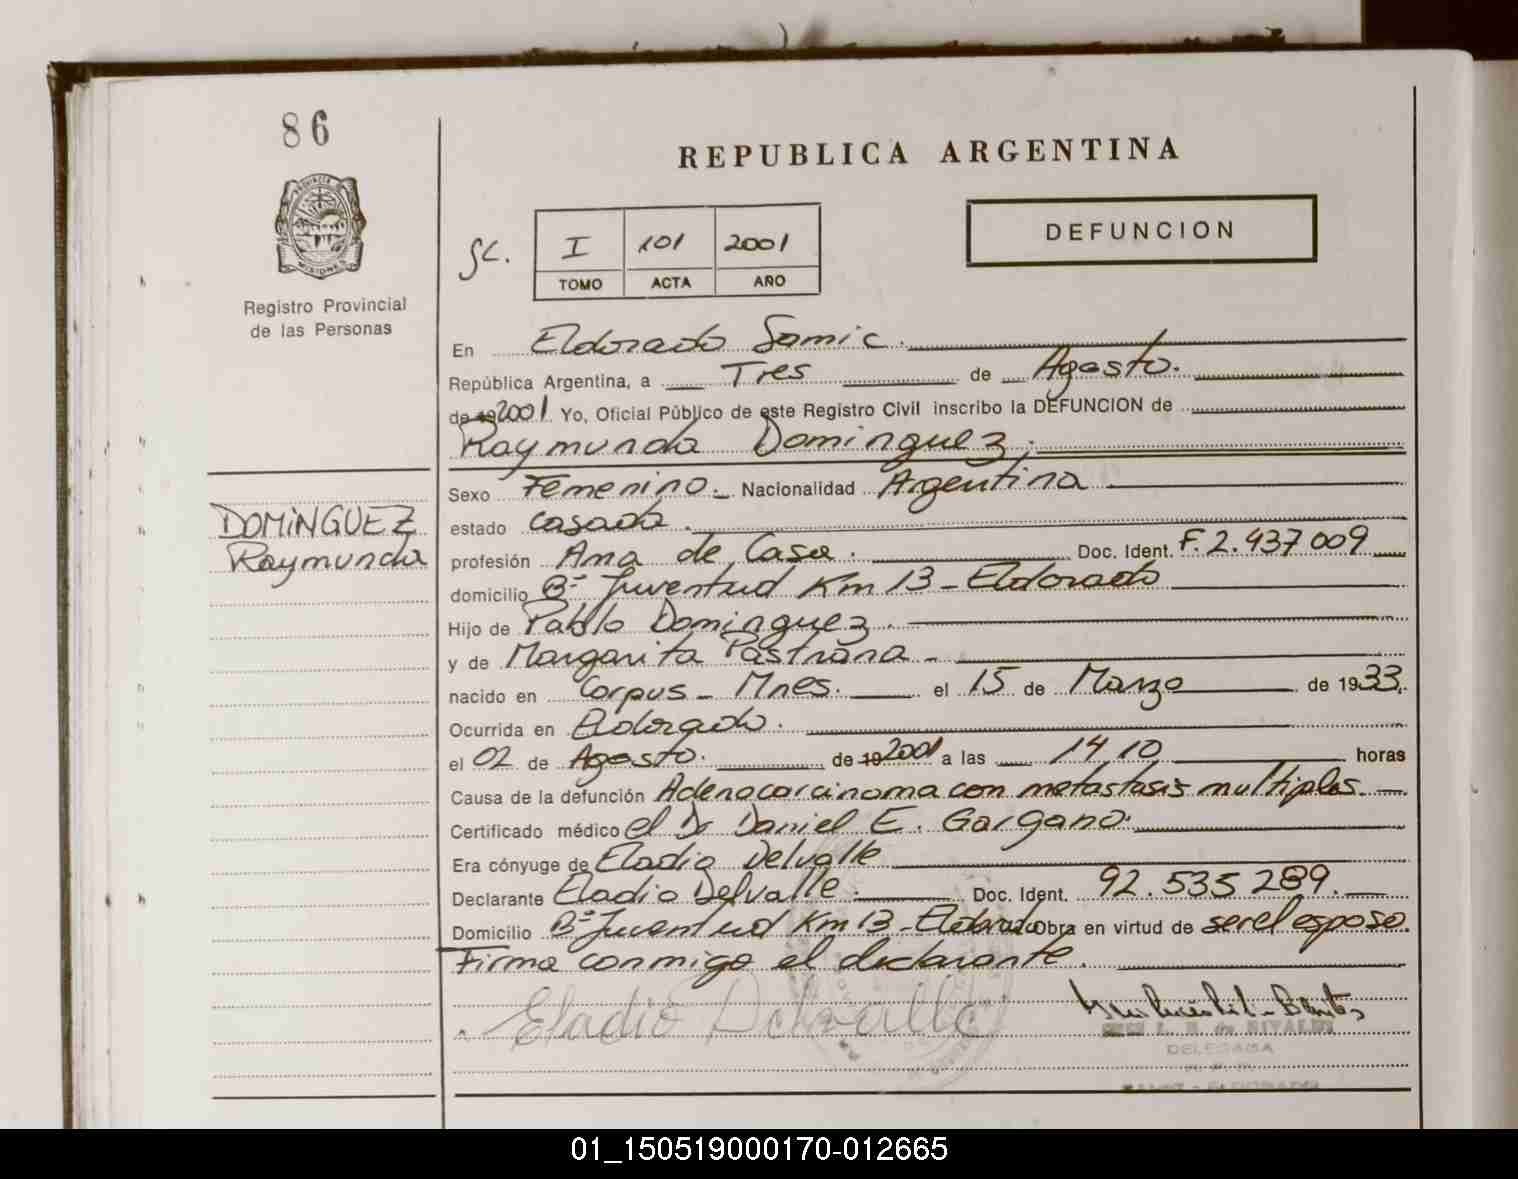 86
REPUBLICA ARGENTINA
DEFUNCION
SC.
I 101 2001
TOMO ACTA AÑO
PROVINCIA DE
MISIONES
Registro Provincial
de las Personas
En Eldorado Samic.
República Argentina, a Tres de Agosto.
de 19 2001. Yo, Oficial Público de este Registro Civil inscribo la DEFUNCION de
Raymunda Dominguez.
Sexo Femenino. Nacionalidad Argentina
DOMINGUEZ
Raymunda
estado casada.
profesión Ama de Casa. Doc. Ident. F. 2.937 009
domicilio Bº Juventud Km 13 - Eldorado
Hijo de Pablo Dominguez.
y de Margarita Pastrana -
nacido en Corpus - Mnes. el 15 de Marzo de 1933.
Ocurrida en Eldorado.
el 02 de Agosto. de 19 2001 a las 14 10 horas
Causa de la defunción Adenocarcinoma con metastasis multiples.
Certificado médico el Dr Daniel E. Gargano.
Era cónyuge de Eladio Delvalle
Declarante Eladio Delvalle. Doc. Ident. 92.535 289.
Domicilio Bº Juventud Km 13 - Eldorado Obra en virtud de ser el esposo.
Firma conmigo el declarante.
Eladio Delvalle
L. B. de RIVALDI
DELEGADA
01_150519000170-012665